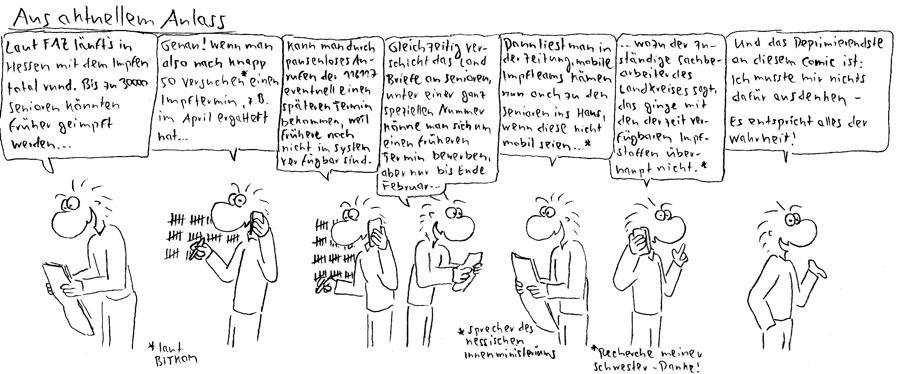 Aus aktuellem Anlass
Laut FAZ läuft's in
Hessen mit dem Impfen
total rund. Bis zu 30000
Senioren könnten
früher geimpft
werden...
Genau! Wenn man
also nach knapp
50 Versuchen* einen
Impftermin, z.B.
im April ergattert
hat...
Kann man durch
pausenloses An-
rufen der 116117
eventuell einen
späteren Termin
bekommen, weil
frühere noch
nicht im System
verfügbar sind.
Gleichzeitig ver-
schickt das Land
Briefe an Senioren,
unter einer ganz
speziellen Nummer
könne man sich um
einen früheren
Termin bewerben,
aber nur bis Ende
Februar...
Dann liest man in
der Zeitung, mobile
Impfteams kämen
nun auch zu den
Senioren ins Haus,
wenn diese nicht
mobil seien...*
...wozu der zu-
ständige Sachbe-
arbeiter des
Landkreises sagt,
das ginge mit
den derzeit ver-
fügbaren Impf-
stoffen über-
haupt nicht.*
Und das Deprimierendste
an diesem Comic ist:
Ich musste mir nichts
dafür ausdenken -
Es entspricht alles der
Wahrheit!
* laut
BITKOM
* Sprecher des
hessischen
Innenministeriums
* Recherche meiner
Schwester - Danke!